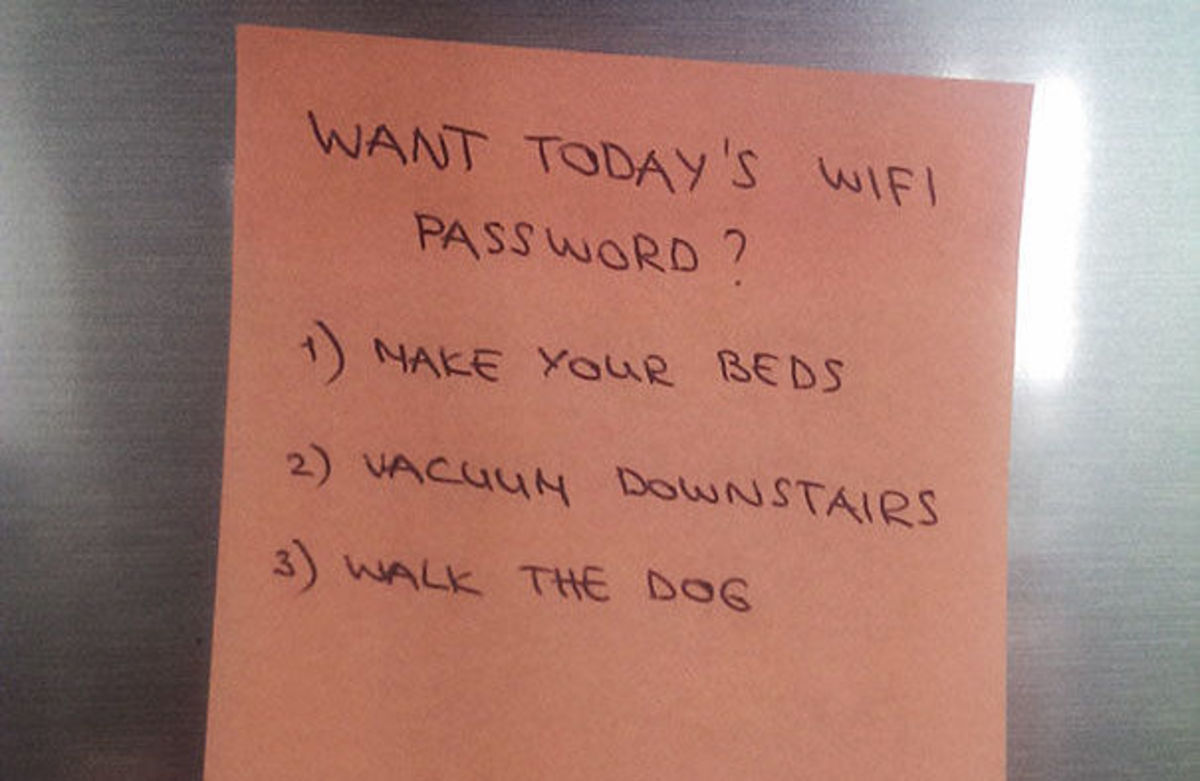 WANT TODAY'S WIFI
PASSWORD?
1) MAKE YOUR BEDS
2) VACUUM DOWNSTAIRS
3) WALK THE DOG